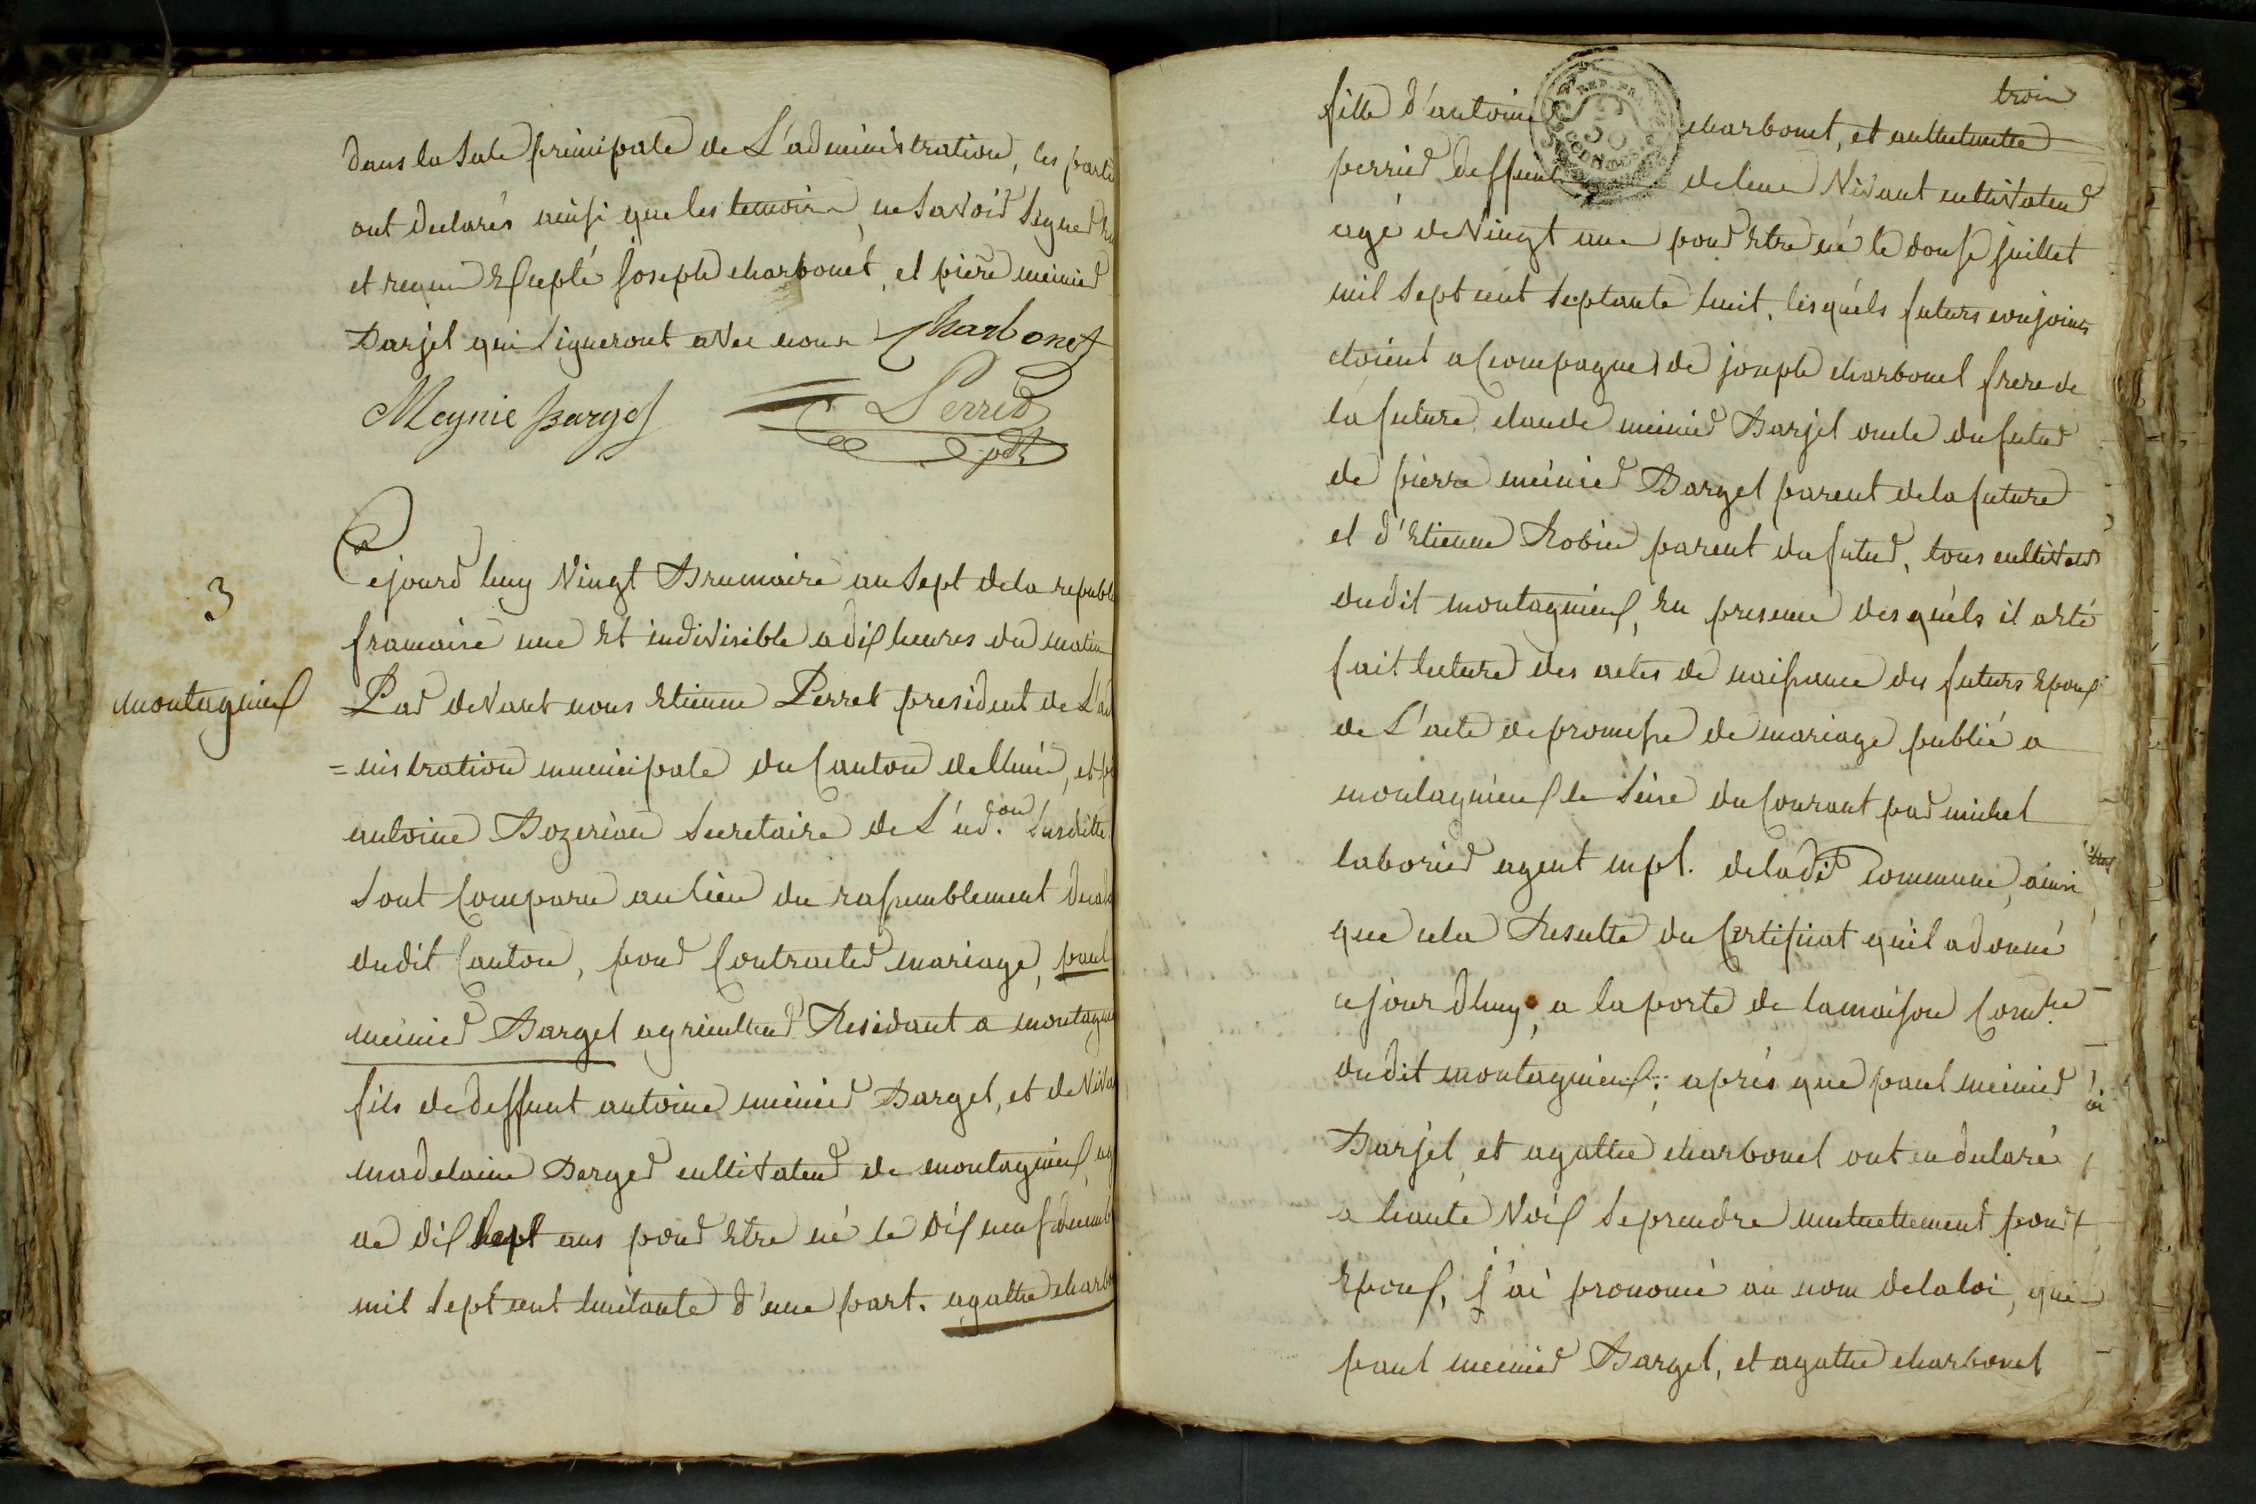 dans la sale principale de L'administration, les parti
ont declarés ainsi que les temoins, ne savoir signer
et requis Excepté joseph charbonet, et piere meinier
Barjet qui signeront avec nous Charbonet
Meynie Barget Perret
pdt
3
Cejourd huy vingt Brumaire an sept de la republi
francaise une Et indivisible a dix heures du matin
montagnieux
Par devant nous Etienne Perret president de L'ad
=nistration municipale du Canton de lhuis, et
antoine Bozerian secretaire de L'ad.on susditte
sont Comparu au lieu du rassemblement decad
dudit Canton, pour Contracter mariage, paul
meinier Barget agriculteur Residant a montagn
fils de deffunt antoine meinier Barget, et de viva
madelaine Berger cultivateur de montagnieux, ag
ée dix sept ans pour Etre né le dix neuf decemb
mil sept cent huitante d'une part. agathe charbo
trois
fille d'antoine charbonet, et anthelmette
perrier deffunt de leur vivant cultivateur
agé de vingt ans pour Etre né le douse juillet
mil sept cent septante huit, lesquéls futurs conjoints
étoient acCompagnés de joseph charbonet frere de
la future, claude meinier Barjet oncle du futur
de pièrre meinier Barget parent de la future
et d'Etienne Robin parent du futur, tous cultivateurs
dudit montagnieux, En presence desquéls il a Eté
fait lecture des actes de naissance des futurs Epoux
de L'acte de promesse de mariage publié a
montagnieux le seise du Courant par michel
laborier agent mpl. de la dte commune, ainsi
que cela Resulte du Certificat quil a donné
cejourdhuy, a la porte de la maison Comne
dudit montagnieux; aprés que paul meinier
Barjet, et agathe charbonet ont eu declaré
a haute voix se prendre mutuellement pour
Epoux, j'ai prononcé au nom de la loi, que
paul meinier Barget, et agathe charbonet